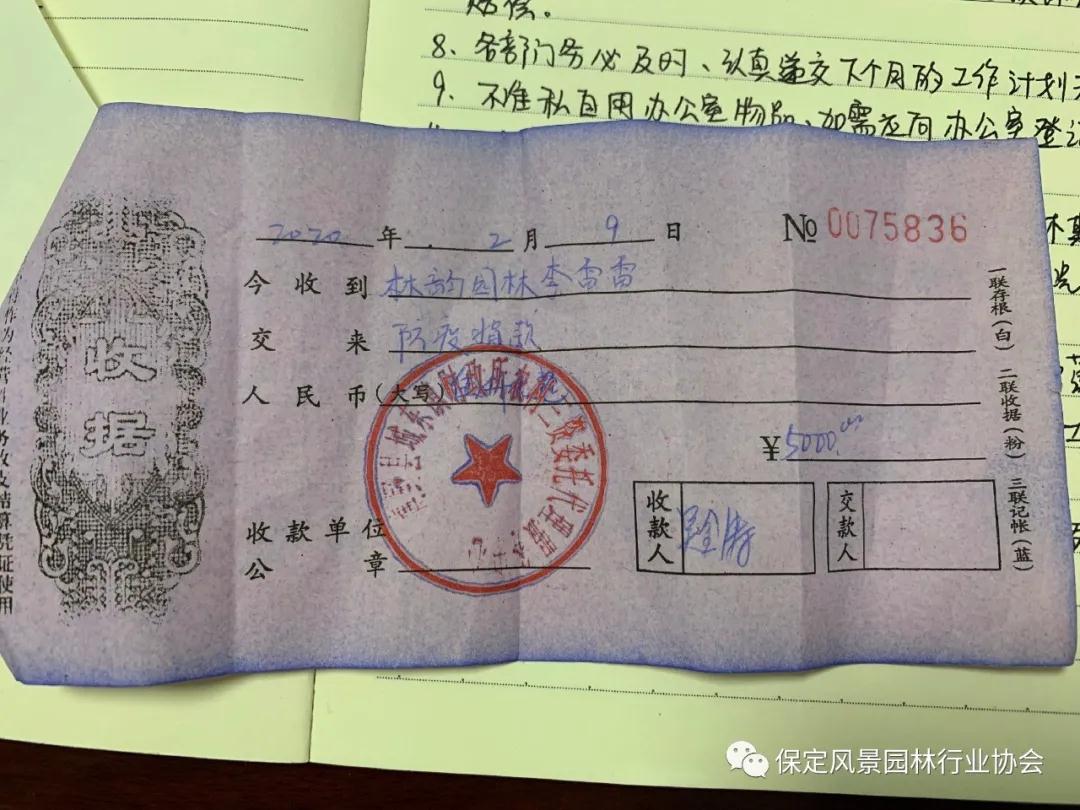 赔偿。
8、各部门务必及时、认真递交下个月的工作计划
9、不准私自用办公室物品、如需应向办公室登记
2020 年 2 月 9 日
№ 0075836
今收到 林韵园林李雷雷
交来 防疫捐款
人民币(大写)
¥ 5000.00
收款单位
公章
收款人
交款人
收据
作为经营性业务收支结算凭证使用
一联存根(白) 二联收据(粉) 三联记帐(蓝)
委托代理
保定风景园林行业协会